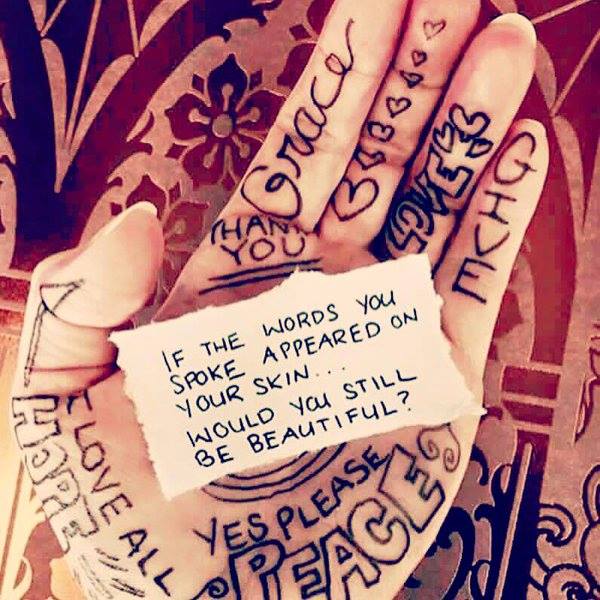 Grace
LOVE
GIVE
THANK
YOU
IF THE WORDS YOU
SPOKE APPEARED ON
YOUR SKIN...
WOULD YOU STILL
BE BEAUTIFUL?
HOPE
LOVE ALL
YES PLEASE
PEACE